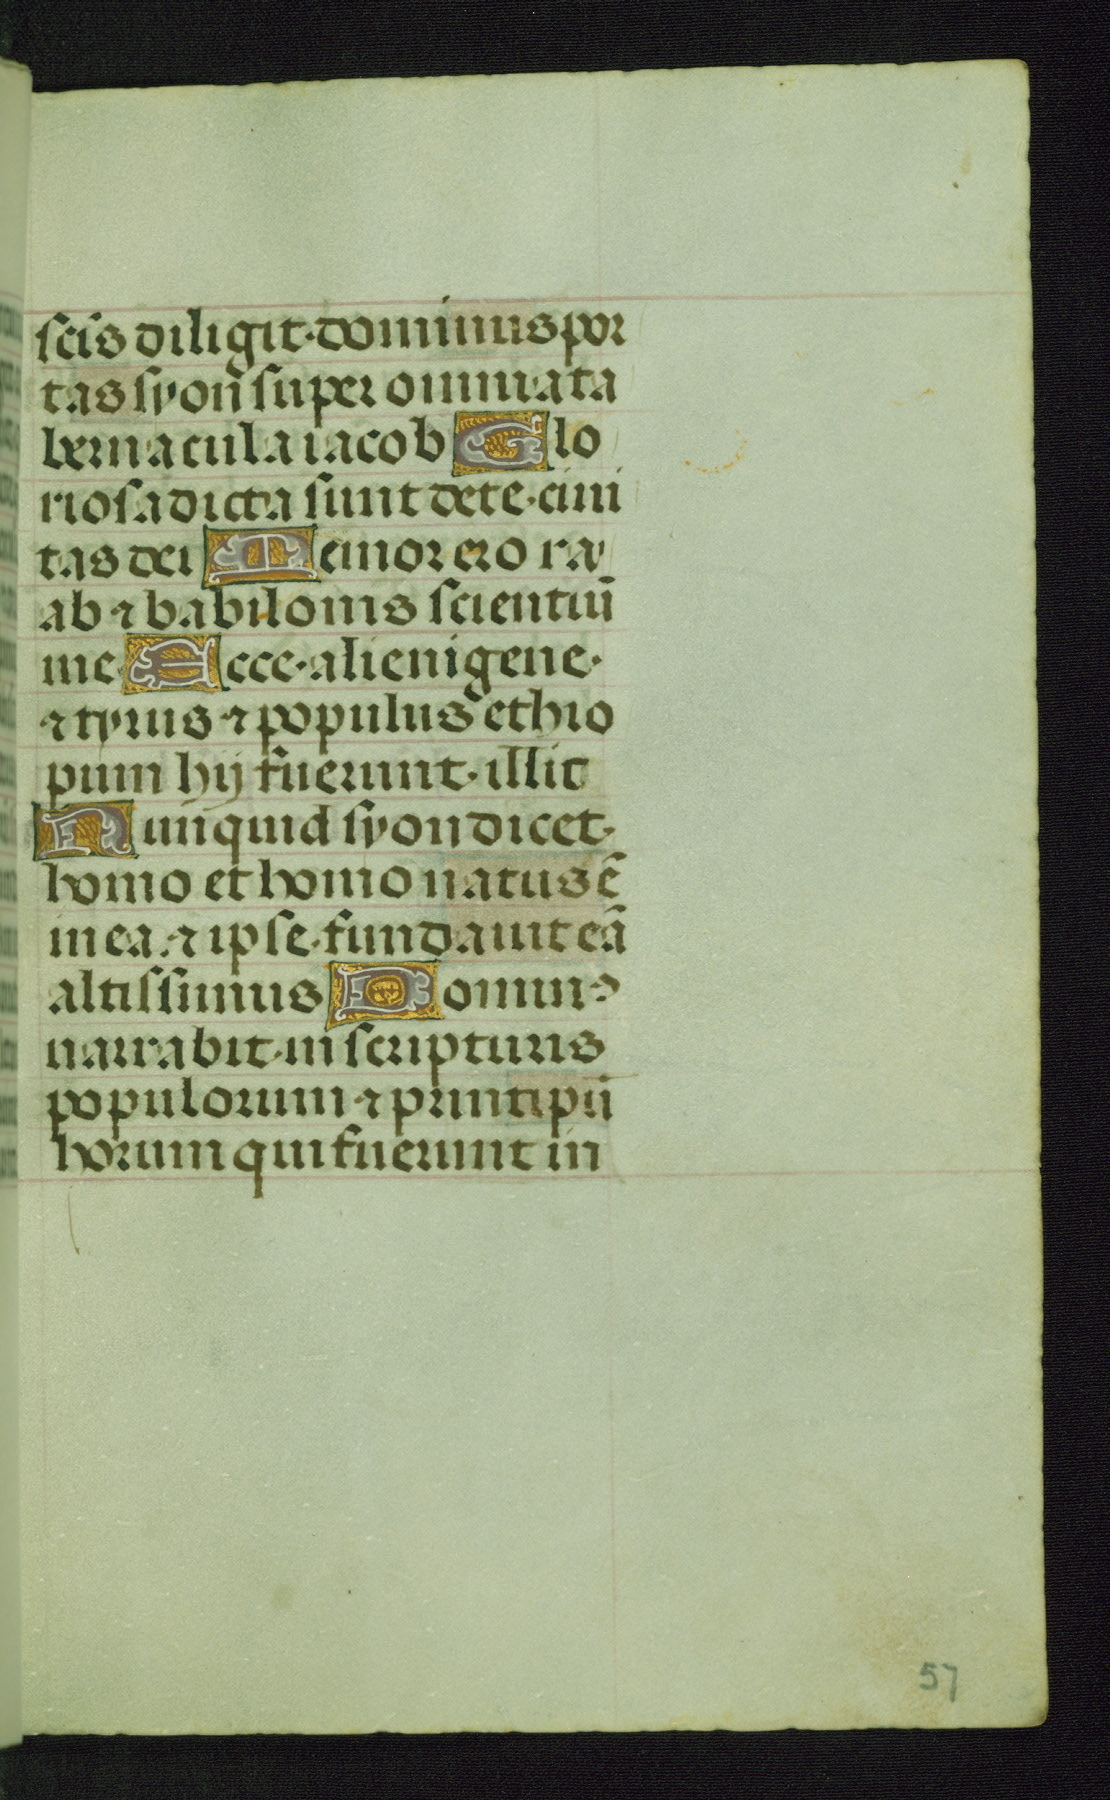 scīs diligit·dominus por
tas syoñ super omnia ta
bernacula iacob Glo
riosa dicta sunt de te·civi
tas dei Memor ero ra
ab ⁊ babilonis scientiū
me Ecce·alienigene·
⁊ tyrus ⁊ populus ethio
pum hij fuerunt·illic
Nunquid syon dicet·
homo et homo natus ē
in ea·⁊ ipse·fundavit eā
altissimus Dominꝰ
narrabit·in scripturis
populorum ⁊ printipū
horum qui fuerunt in
57